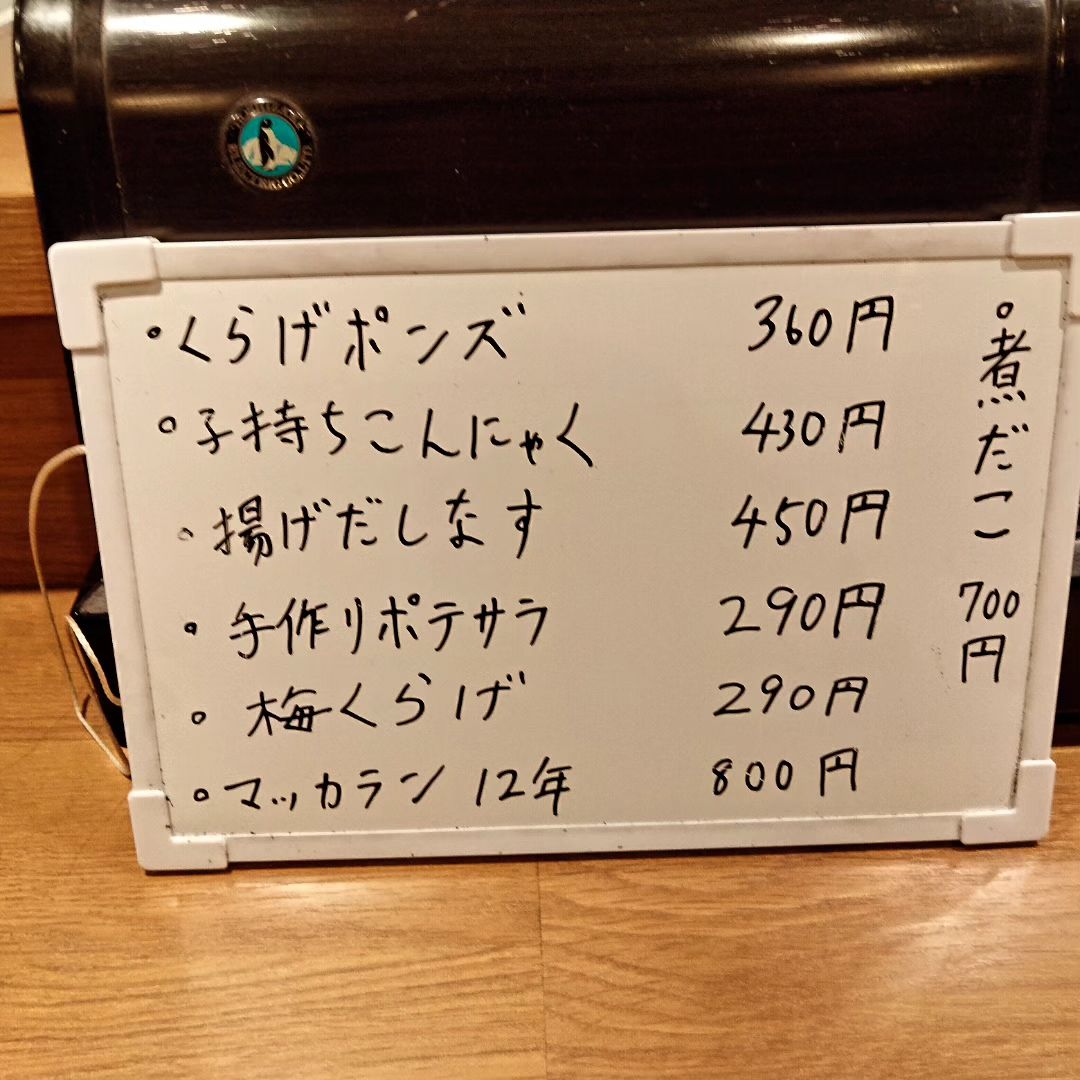 くらげポンズ 360円
子持ちこんにゃく 430円
揚げだしなす 450円
手作りポテサラ 290円
梅くらげ 290円
マッカラン 12年 800円
煮だこ 700円